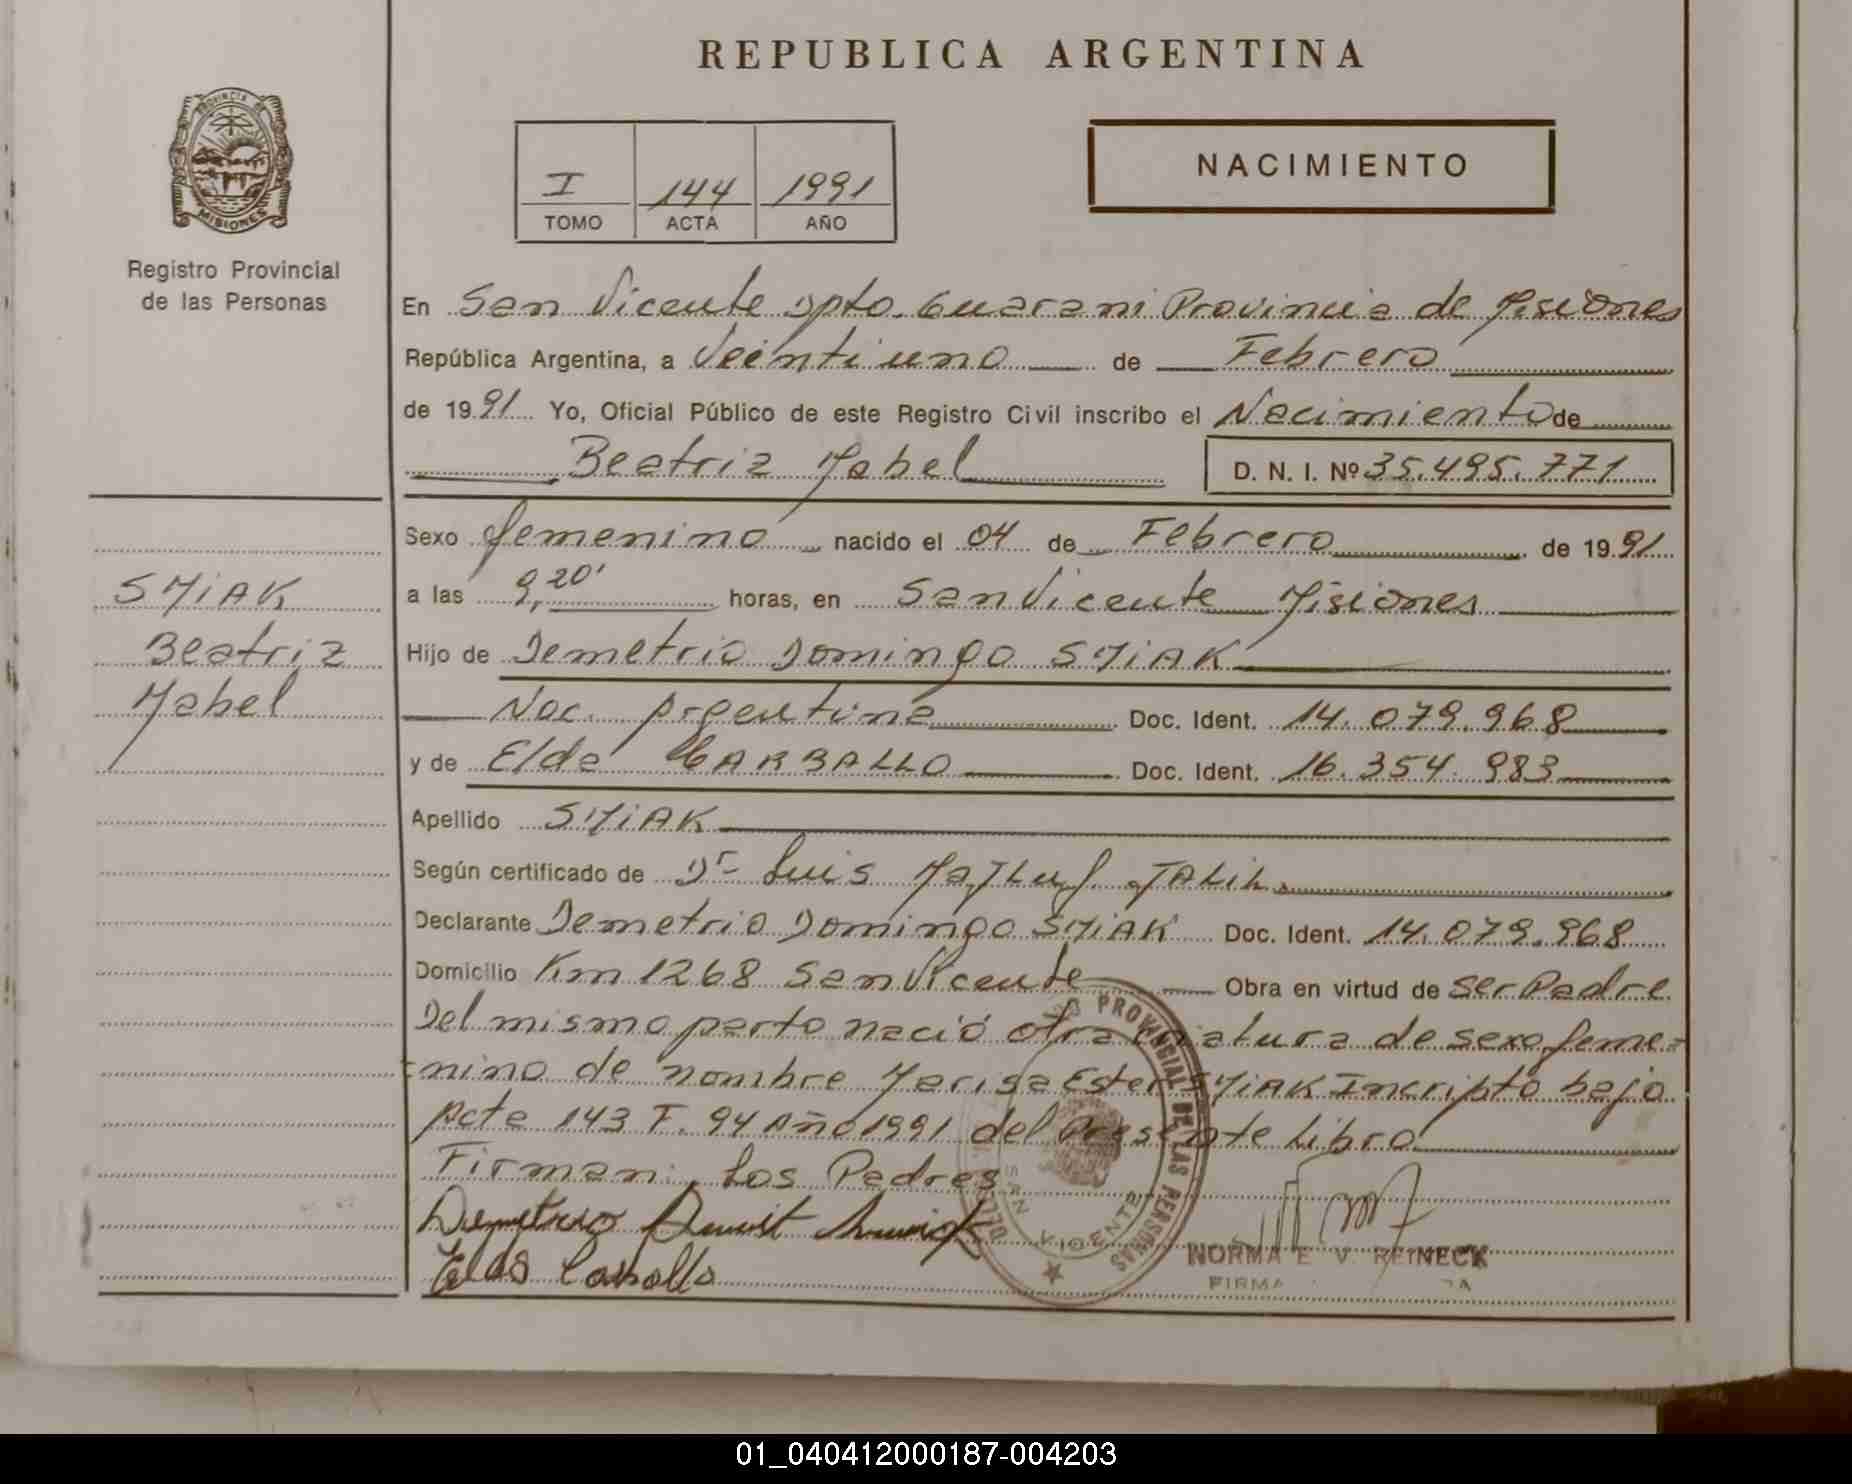 REPUBLICA ARGENTINA
PROVINCIA DE
MISIONES
Registro Provincial
de las Personas
I 144 1991
TOMO ACTA AÑO
NACIMIENTO
En San Vicente Dpto. Guarani Provincia de Misiones
República Argentina, a Veintiuno de Febrero
de 1991 Yo, Oficial Público de este Registro Civil inscribo el Nacimiento de
Beatriz Mabel D. N. I. Nº 35.495.771
Sexo femenino nacido el 04 de Febrero de 1991
a las 9,20' horas, en San Vicente Misiones
Hijo de Demetrio Domingo SMiAK
Nac. Argentina Doc. Ident. 14.079.968
y de Elda CARBALLO Doc. Ident. 16.354.983
Apellido SMiAK
Según certificado de Dr Luis Majluf JALIL
Declarante Demetrio Domingo SMiAK Doc. Ident. 14.079.968
Domicilio Km 1268 San Vicente Obra en virtud de ser Padre
Del mismo parto nació otra criatura de sexo feme=
=nino de nombre Marisa Ester SMiAK Incripto bajo
Acta 143 F. 94 Año 1991 del Presente Libro
Firman: Los Padres
Demetrio
Elda Carballo
SMiAK
Beatriz
Mabel
PROVINCIAL DE LAS PERSONAS
SAN VICENTE
NORMA E. V. REINECK
FIRMA
01_040412000187-004203